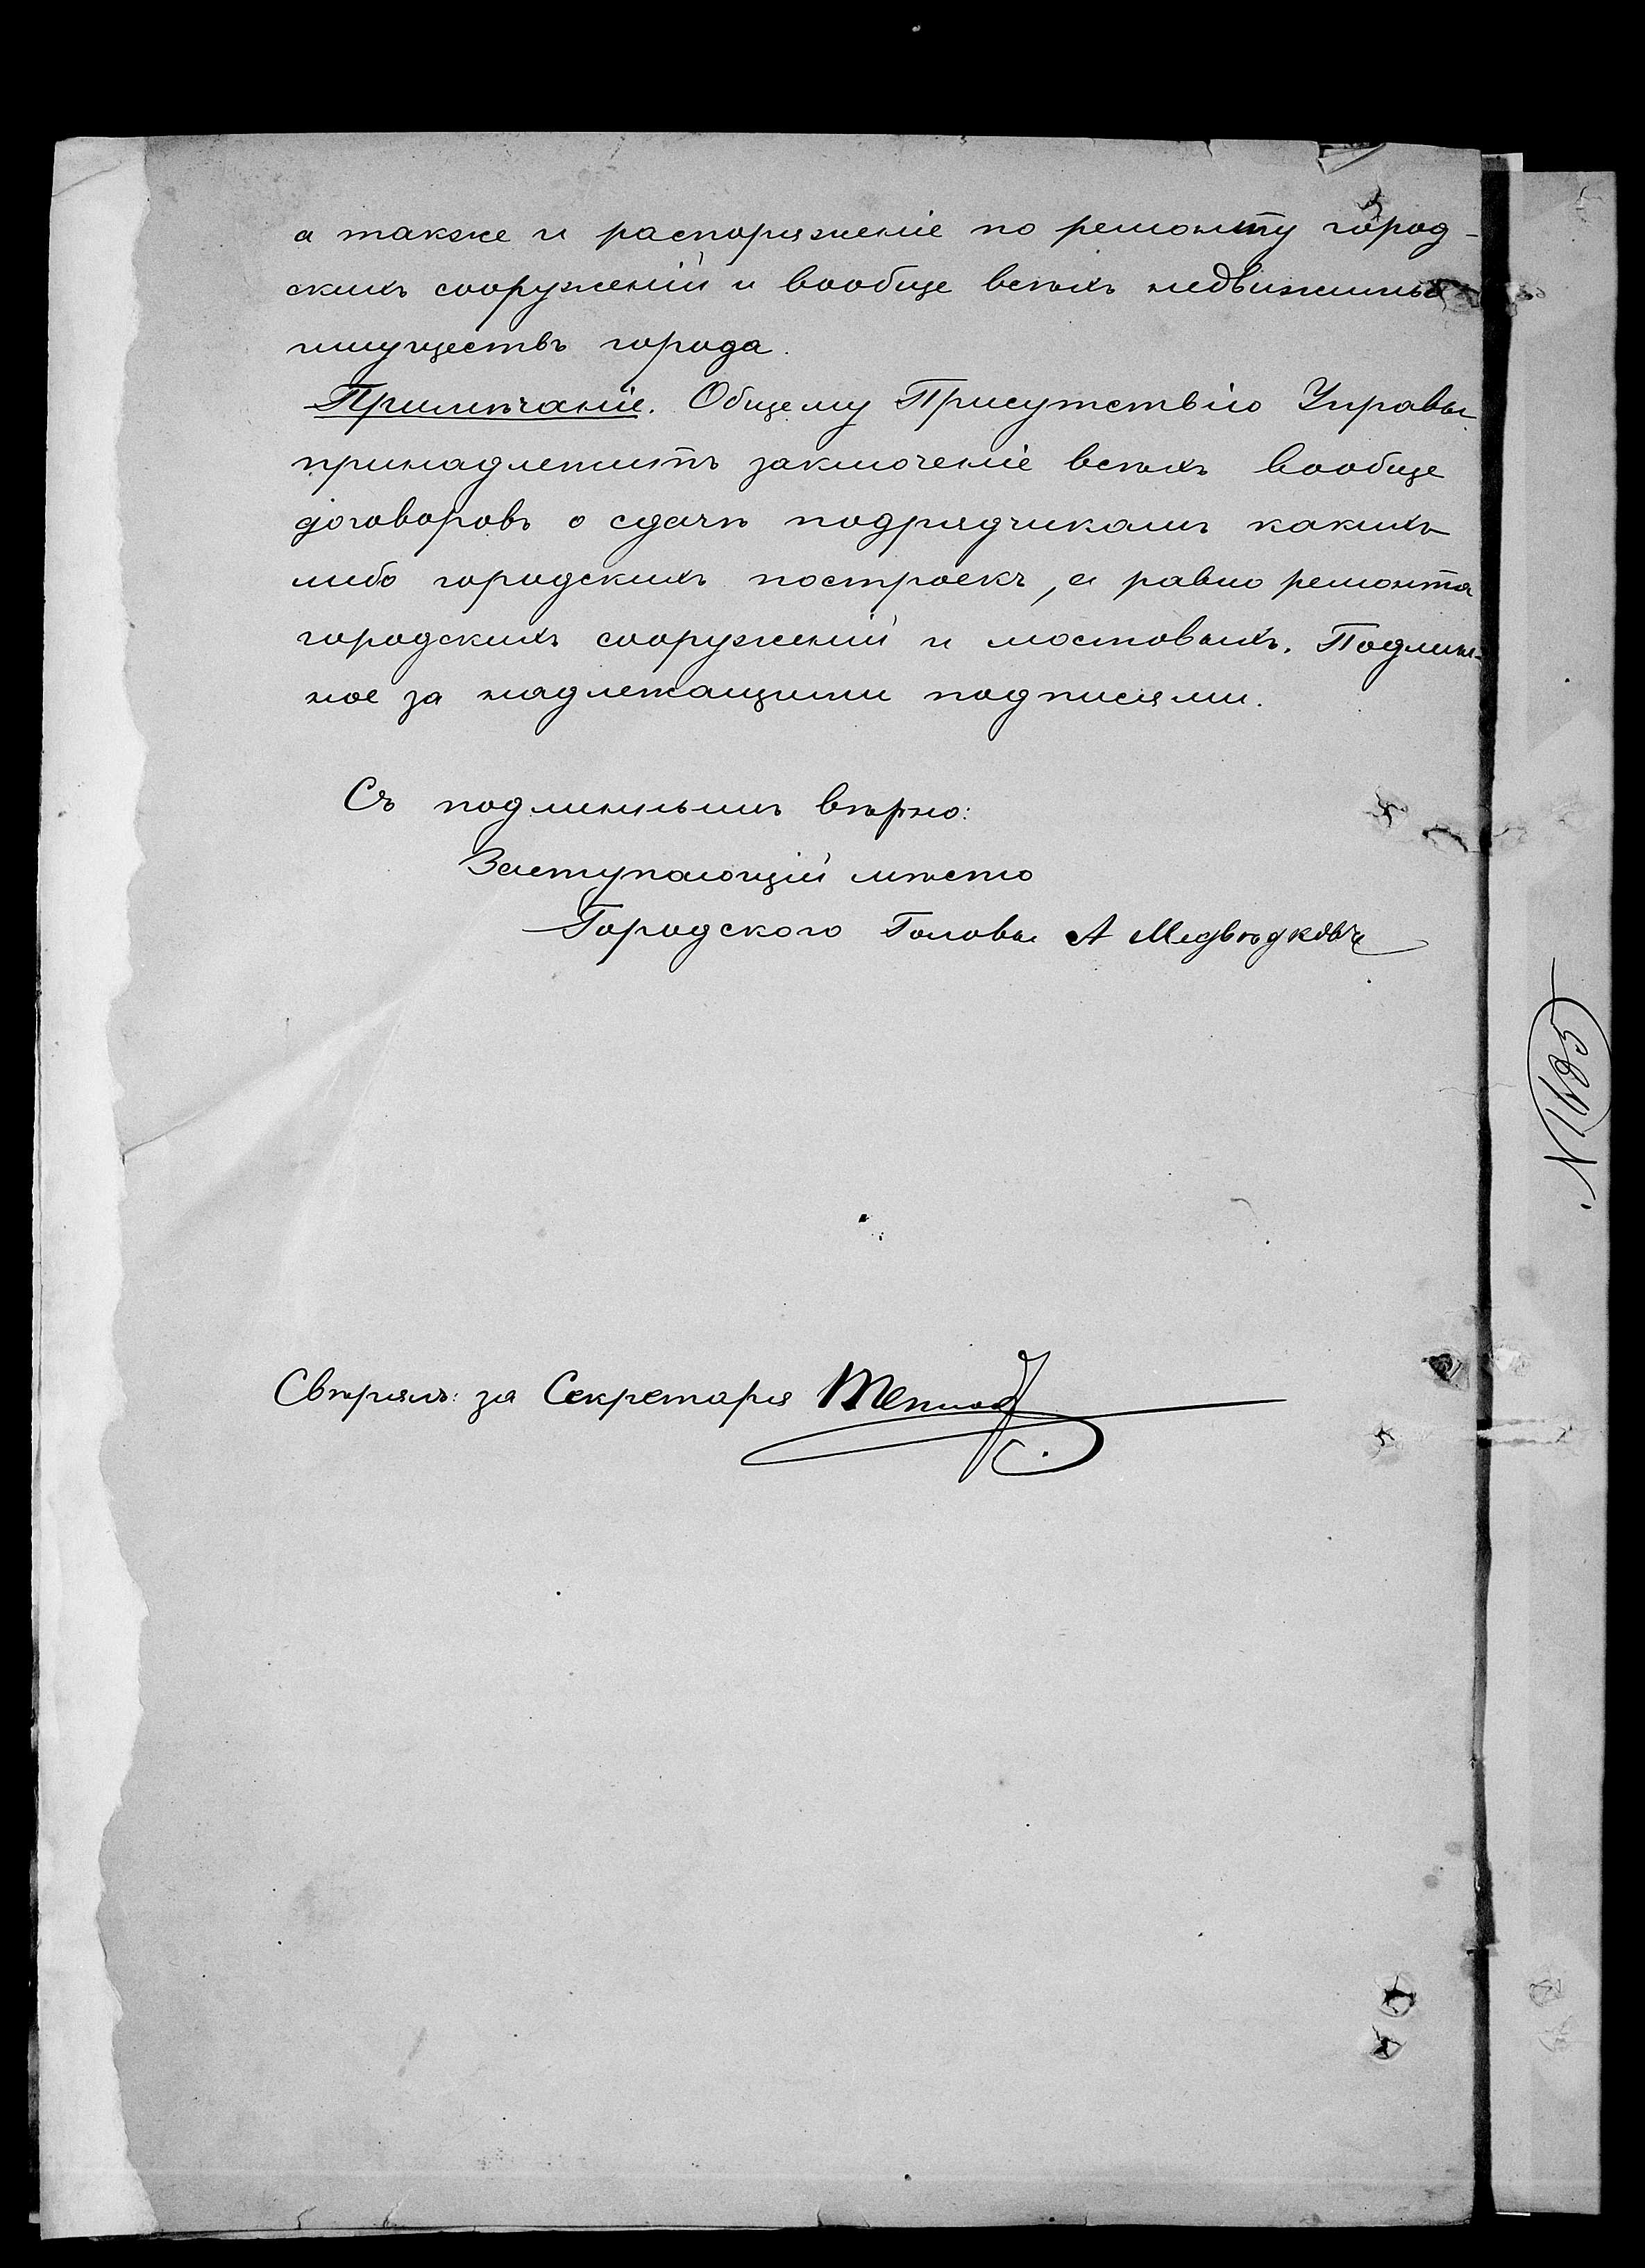 а также и распоряженіе по ремонту город-
скихъ сооруженій и вообще всѣхъ недвижимых
имуществъ города.
Примѣчаніе. Общему Присутствію Управы
принадлежитъ заключеніе всѣхъ вообще
договоровъ о сдачѣ подрядчикамъ какихъ
либо городскихъ построекъ, а равно ремонта
городскихъ сооруженій и мостовыхъ. Подлин-
ное за надлежащими подписями.
Съ подлиннымъ вѣрно:
Заступающій мѣсто
Городского Головы А
Свѣрялъ: за Секретаря